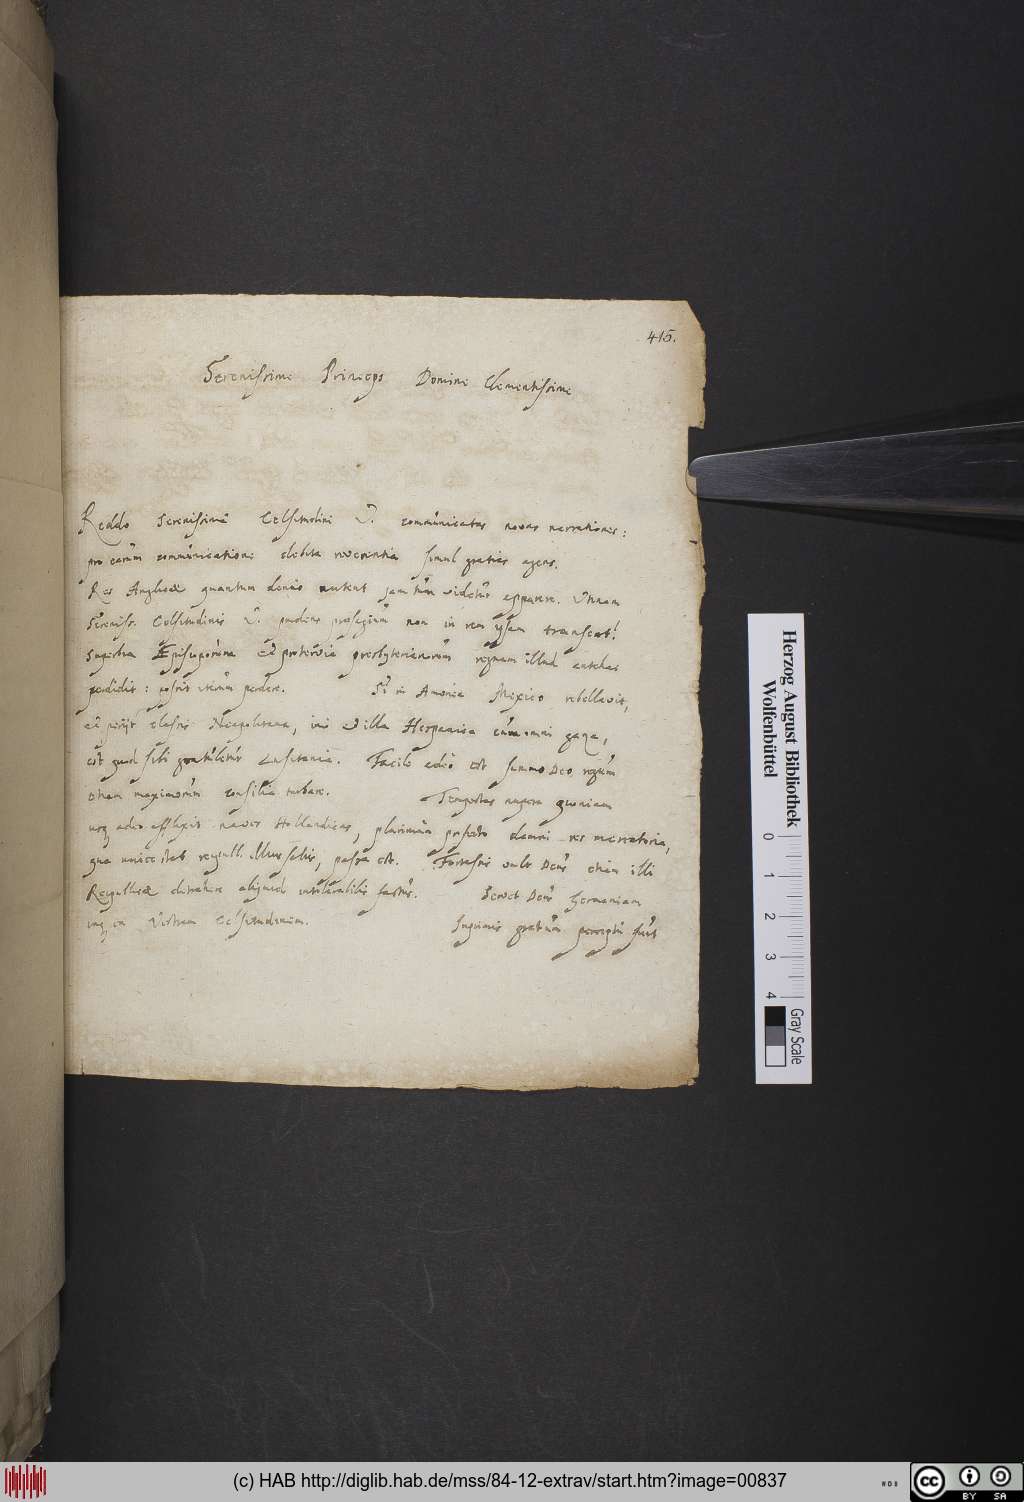 415.
Serenissime Princeps Domine Clementissime
Reddo Serenissimæ Celsitudini V. communicatas novas narrationes:
pro earum communicatione debita reverentia simul gratias agens.
Res Anglicæ quantum denuo nutent jam tum videtur apparere. Utinam
Sereniss. Celsitudinis V. prudens præsagium non in rem ipsam transeat!
Superbia Episcoporum Et protervia presbyterianorum regnum illud antehac
perdidit: poterit iterum perdere. Si in America Mexico rebellavit,
et periit classis Neapolitana, imo et illa Hispanica cum omni gaza,
est quod sibi gratuletur Lusitania. Facile adeo est summo Deo regum
etiam maximorum consilia turbare. Tempestas nupera quoniam
usq adeo afflixit naves Hollandicas, plurimum profecto damni res mercatoria,
qua unice stat respubl. illius salus, passa est. Fortassis vult Deus etiam illi
Reipublicæ detrahere aliquid intolerabilis fastus. Servet Deus Germaniam
inq ea Vestram Celsitudinem. Inprimis gratum percepi fuit
Herzog August Bibliothek
Wolfenbüttel
0 1 2 3 4
Gray Scale
(c) HAB http://diglib.hab.de/mss/84-12-extrav/start.htm?image=00837
cc BY SA